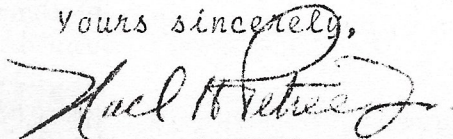 Yours sincerely,
Noel H Petree Jr